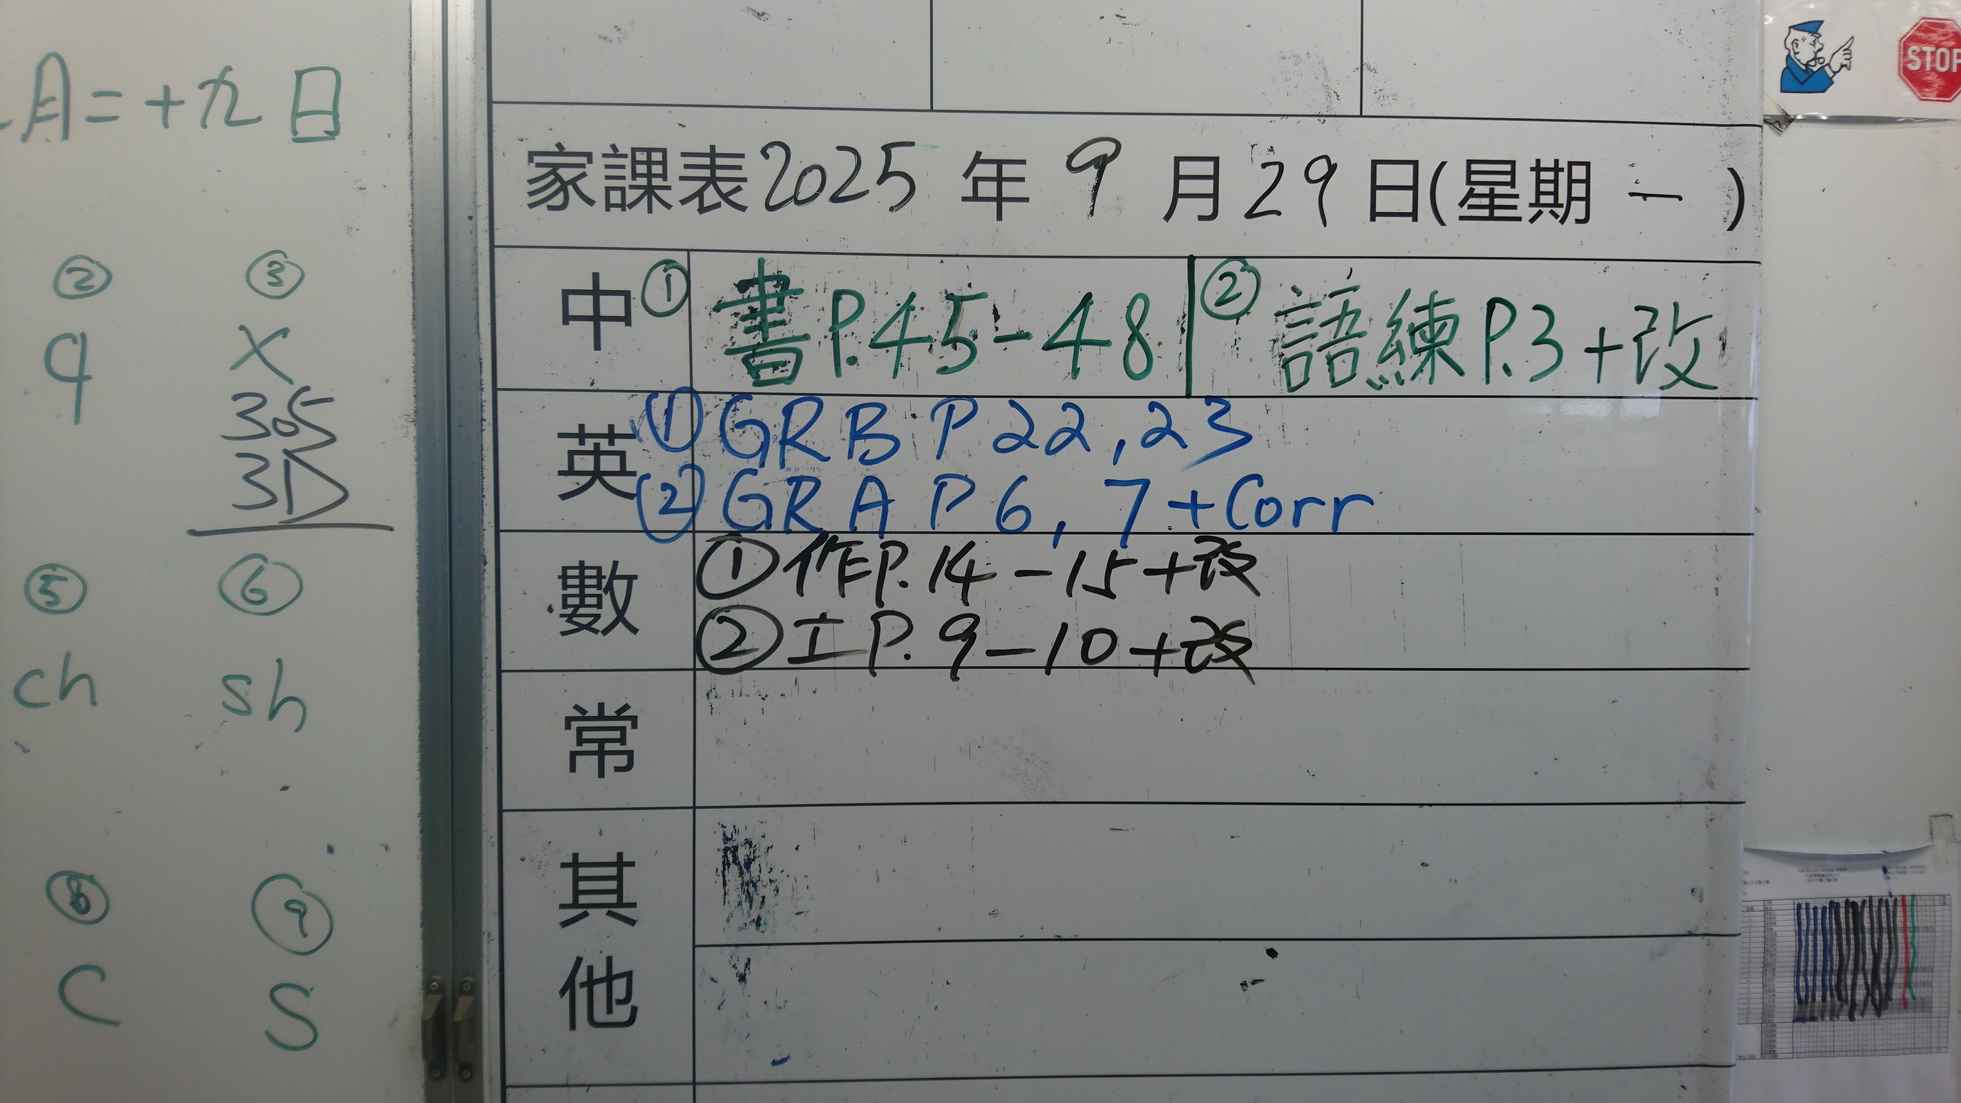 月二十九日
② ③
q x
305
3D
⑤ ⑥
ch sh
⑧ ⑨
c s
家課表2025年9月29日(星期一)
中 ① 書P.45-48 ② 語練P.3+改
英 ① GRB P22,23
② GRA P6,7+Corr
數 ① 作P.14-15+改
② 工P.9-10+改
常
其他
STOP